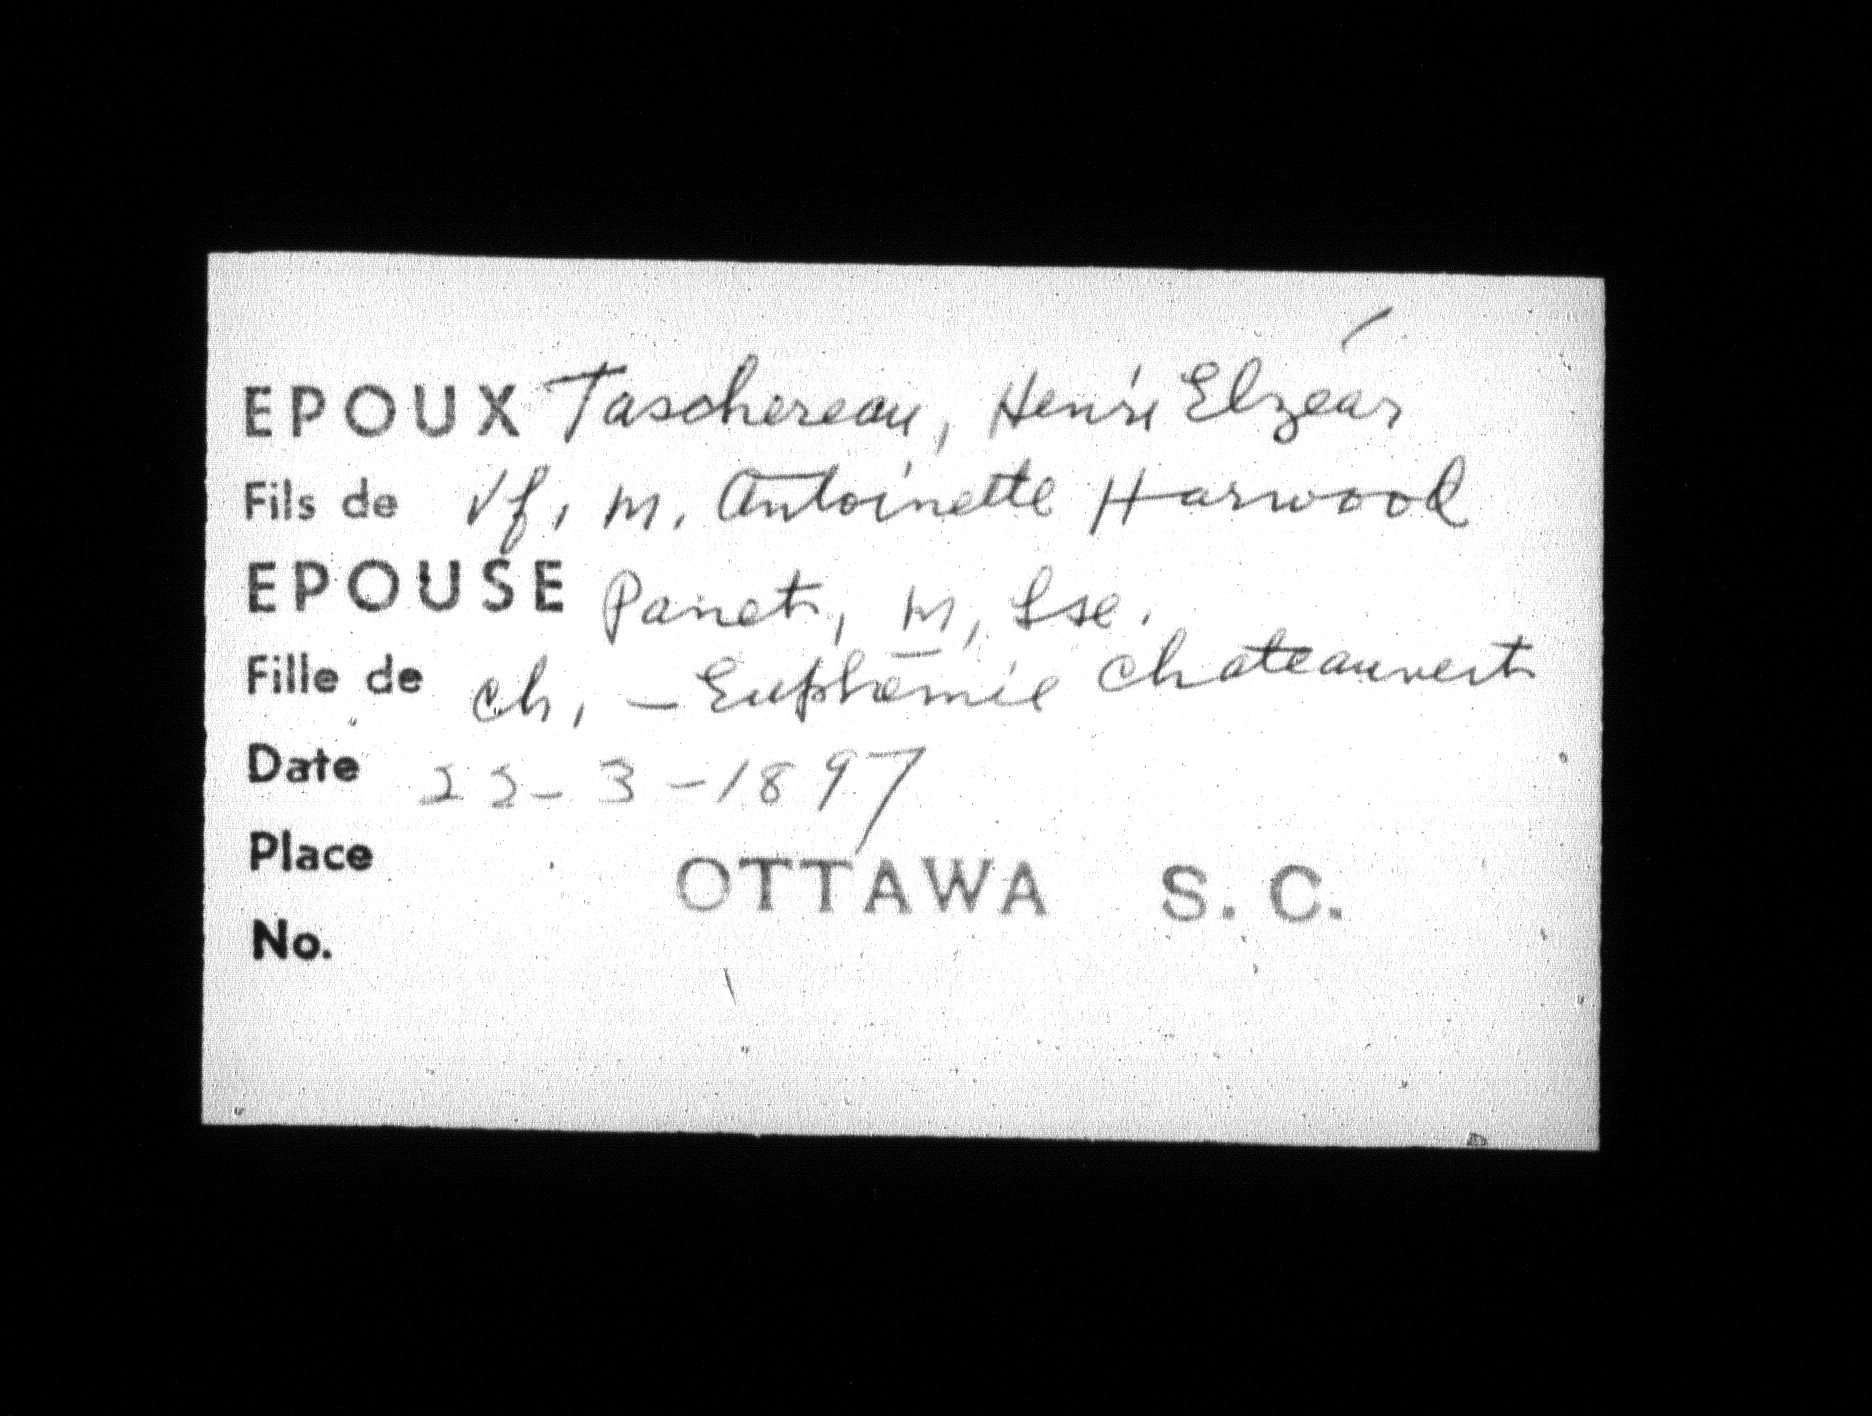 EPOUX Taschereau, Henri Elzéar
Fils de Vf, M. Antoinette Harwood
EPOUSE Panet, M, Lse.
Fille de Ch, - Euphémie Chateauvert
Date 22-3-1897
Place OTTAWA S. C.
No.